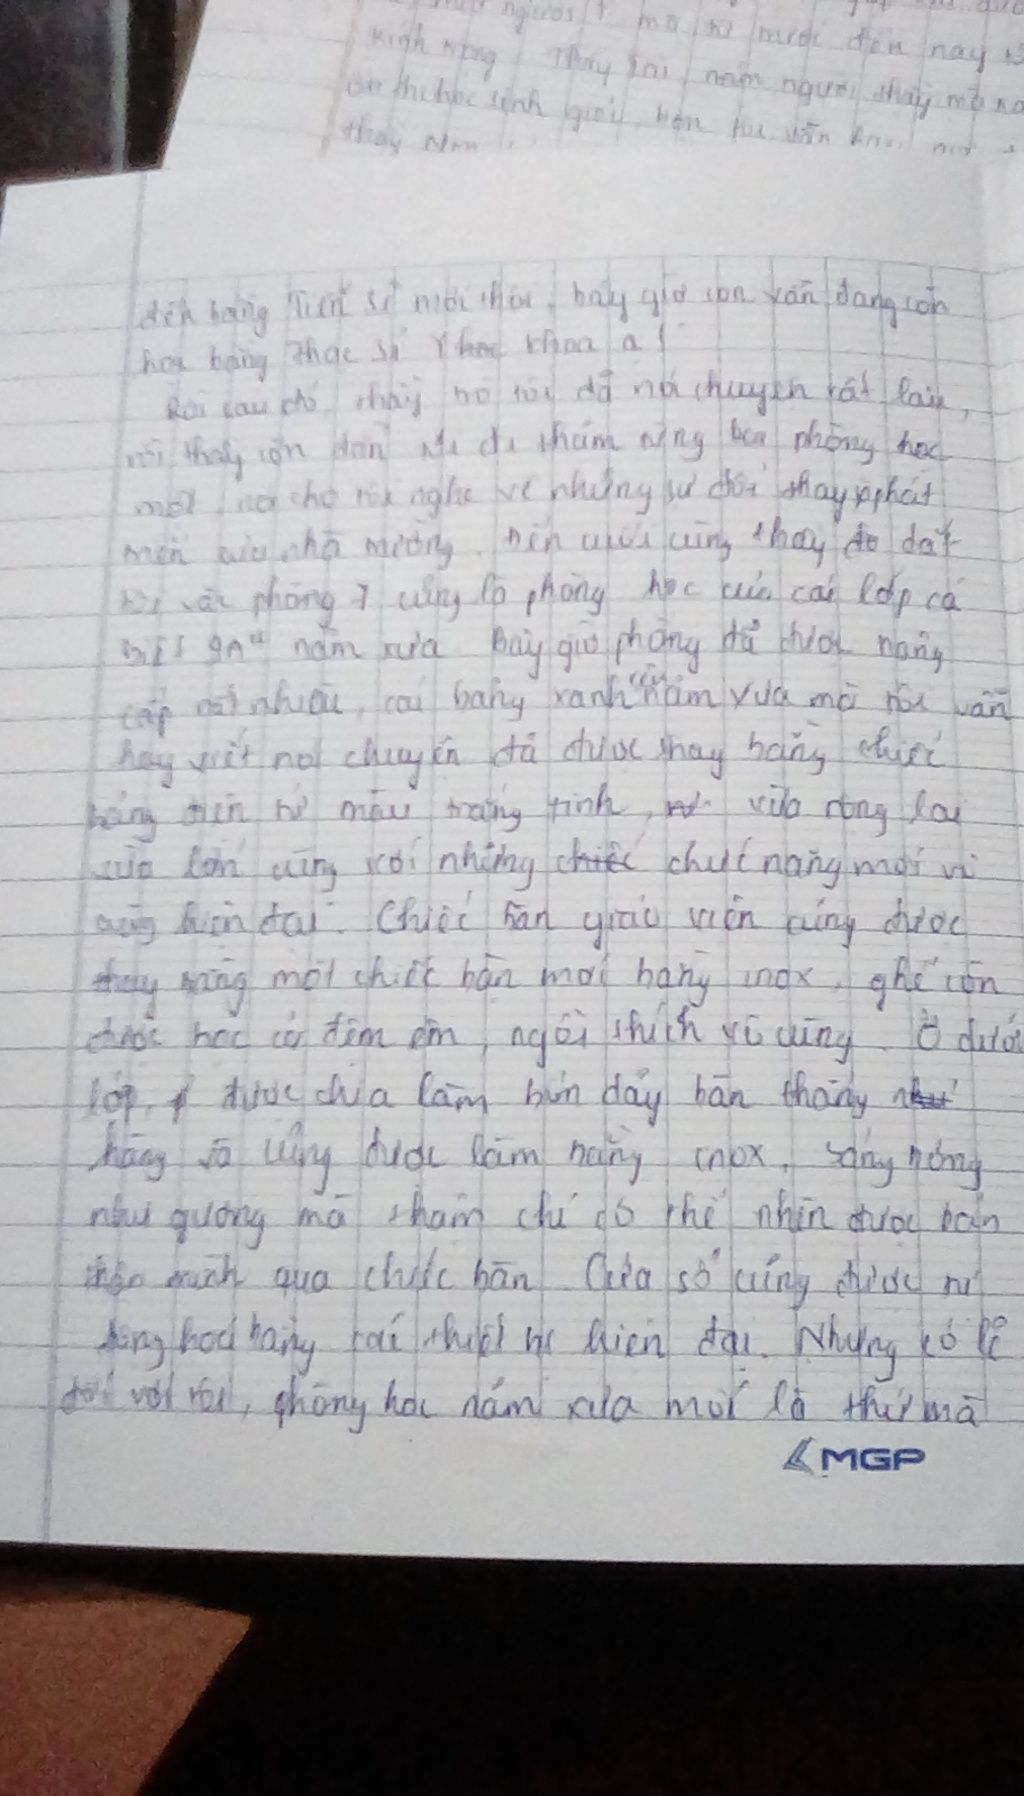 người
mới đến nay
năm người thầy mà
thi học sinh giỏi
thầy
đến bằng Tiến sĩ mới thôi, bây giờ con vẫn đang còn
học bằng Thạc sĩ Y khoa ạ!
Rồi sau đó, thầy trò tôi đã nói chuyện rất lâu,
rồi thầy còn dẫn tôi đi thăm từng phòng học
một, nói cho tôi nghe về những sự đổi thay, phát
của nhà trường. Đến cuối cùng thầy dắt
tôi vào phòng 7 cũng là phòng học của cái lớp cá
biệt 9A4 năm xưa. Bây giờ phòng đã được nâng
cấp rất nhiều, cái bảng xanh năm xưa mà tôi vẫn
hay viết nói chuyện đã được thay bằng chiếc
bảng điện tử màu trắng tinh, vừa rộng lại
vừa lớn cùng với những chức năng mới vô
cùng hiện đại. Chiếc bàn giáo viên cũng được
thay bằng một chiếc bàn mới bằng inox, ghế còn
được bọc cả đệm êm, ngồi thích vô cùng. Ở dưới
lớp, được chia làm bốn dãy bàn thẳng
hàng và cũng được làm bằng inox, sáng bóng
như gương mà thậm chí có thể nhìn được bản
thân mình qua chiếc bàn. Cửa sổ cũng được tự
động hoá bằng cái thiết bị hiện đại. Nhưng có lẽ
đối với tôi, phòng học năm xưa mới là thứ mà
MGP